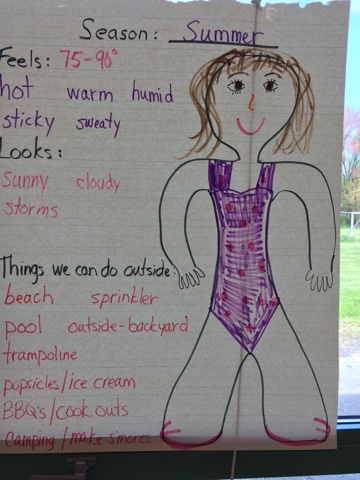 Season: Summer
Feels: 75-90°
hot warm humid
sticky sweaty
Looks:
Sunny cloudy
storms
Things we can do outside:
beach sprinkler
pool outside-backyard
trampoline
popsicles/ice cream
BBQ's/cook outs
Camping/make s'mores